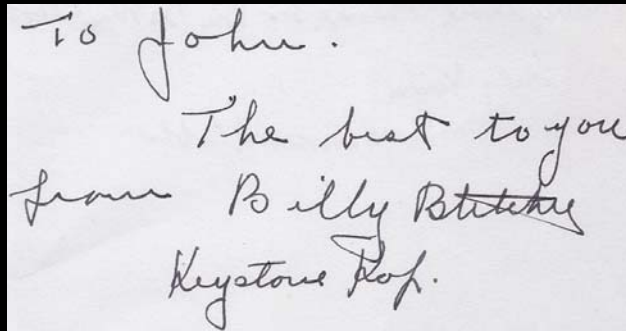 To John.
The best to you
from Billy
Keystone Kop.